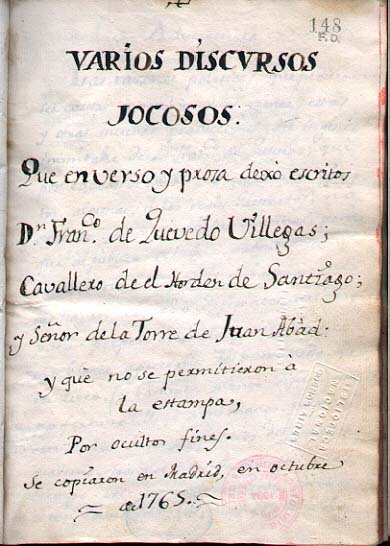 148
F.O.
VARIOS DISCVRSOS
JOCOSOS.
Que en verso y prosa dexò escritos
Dn. Franco. de Quevedo Villegas;
Cavallero de el Horden de Santiago;
y Señor de la Torre de Juan Abàd:
y què no se permitieron à
la estampa,
Por ocultos fines.
Se copiaron en Madrid, en octubre
de 1765.
BIBLIOTECA
NACIONAL